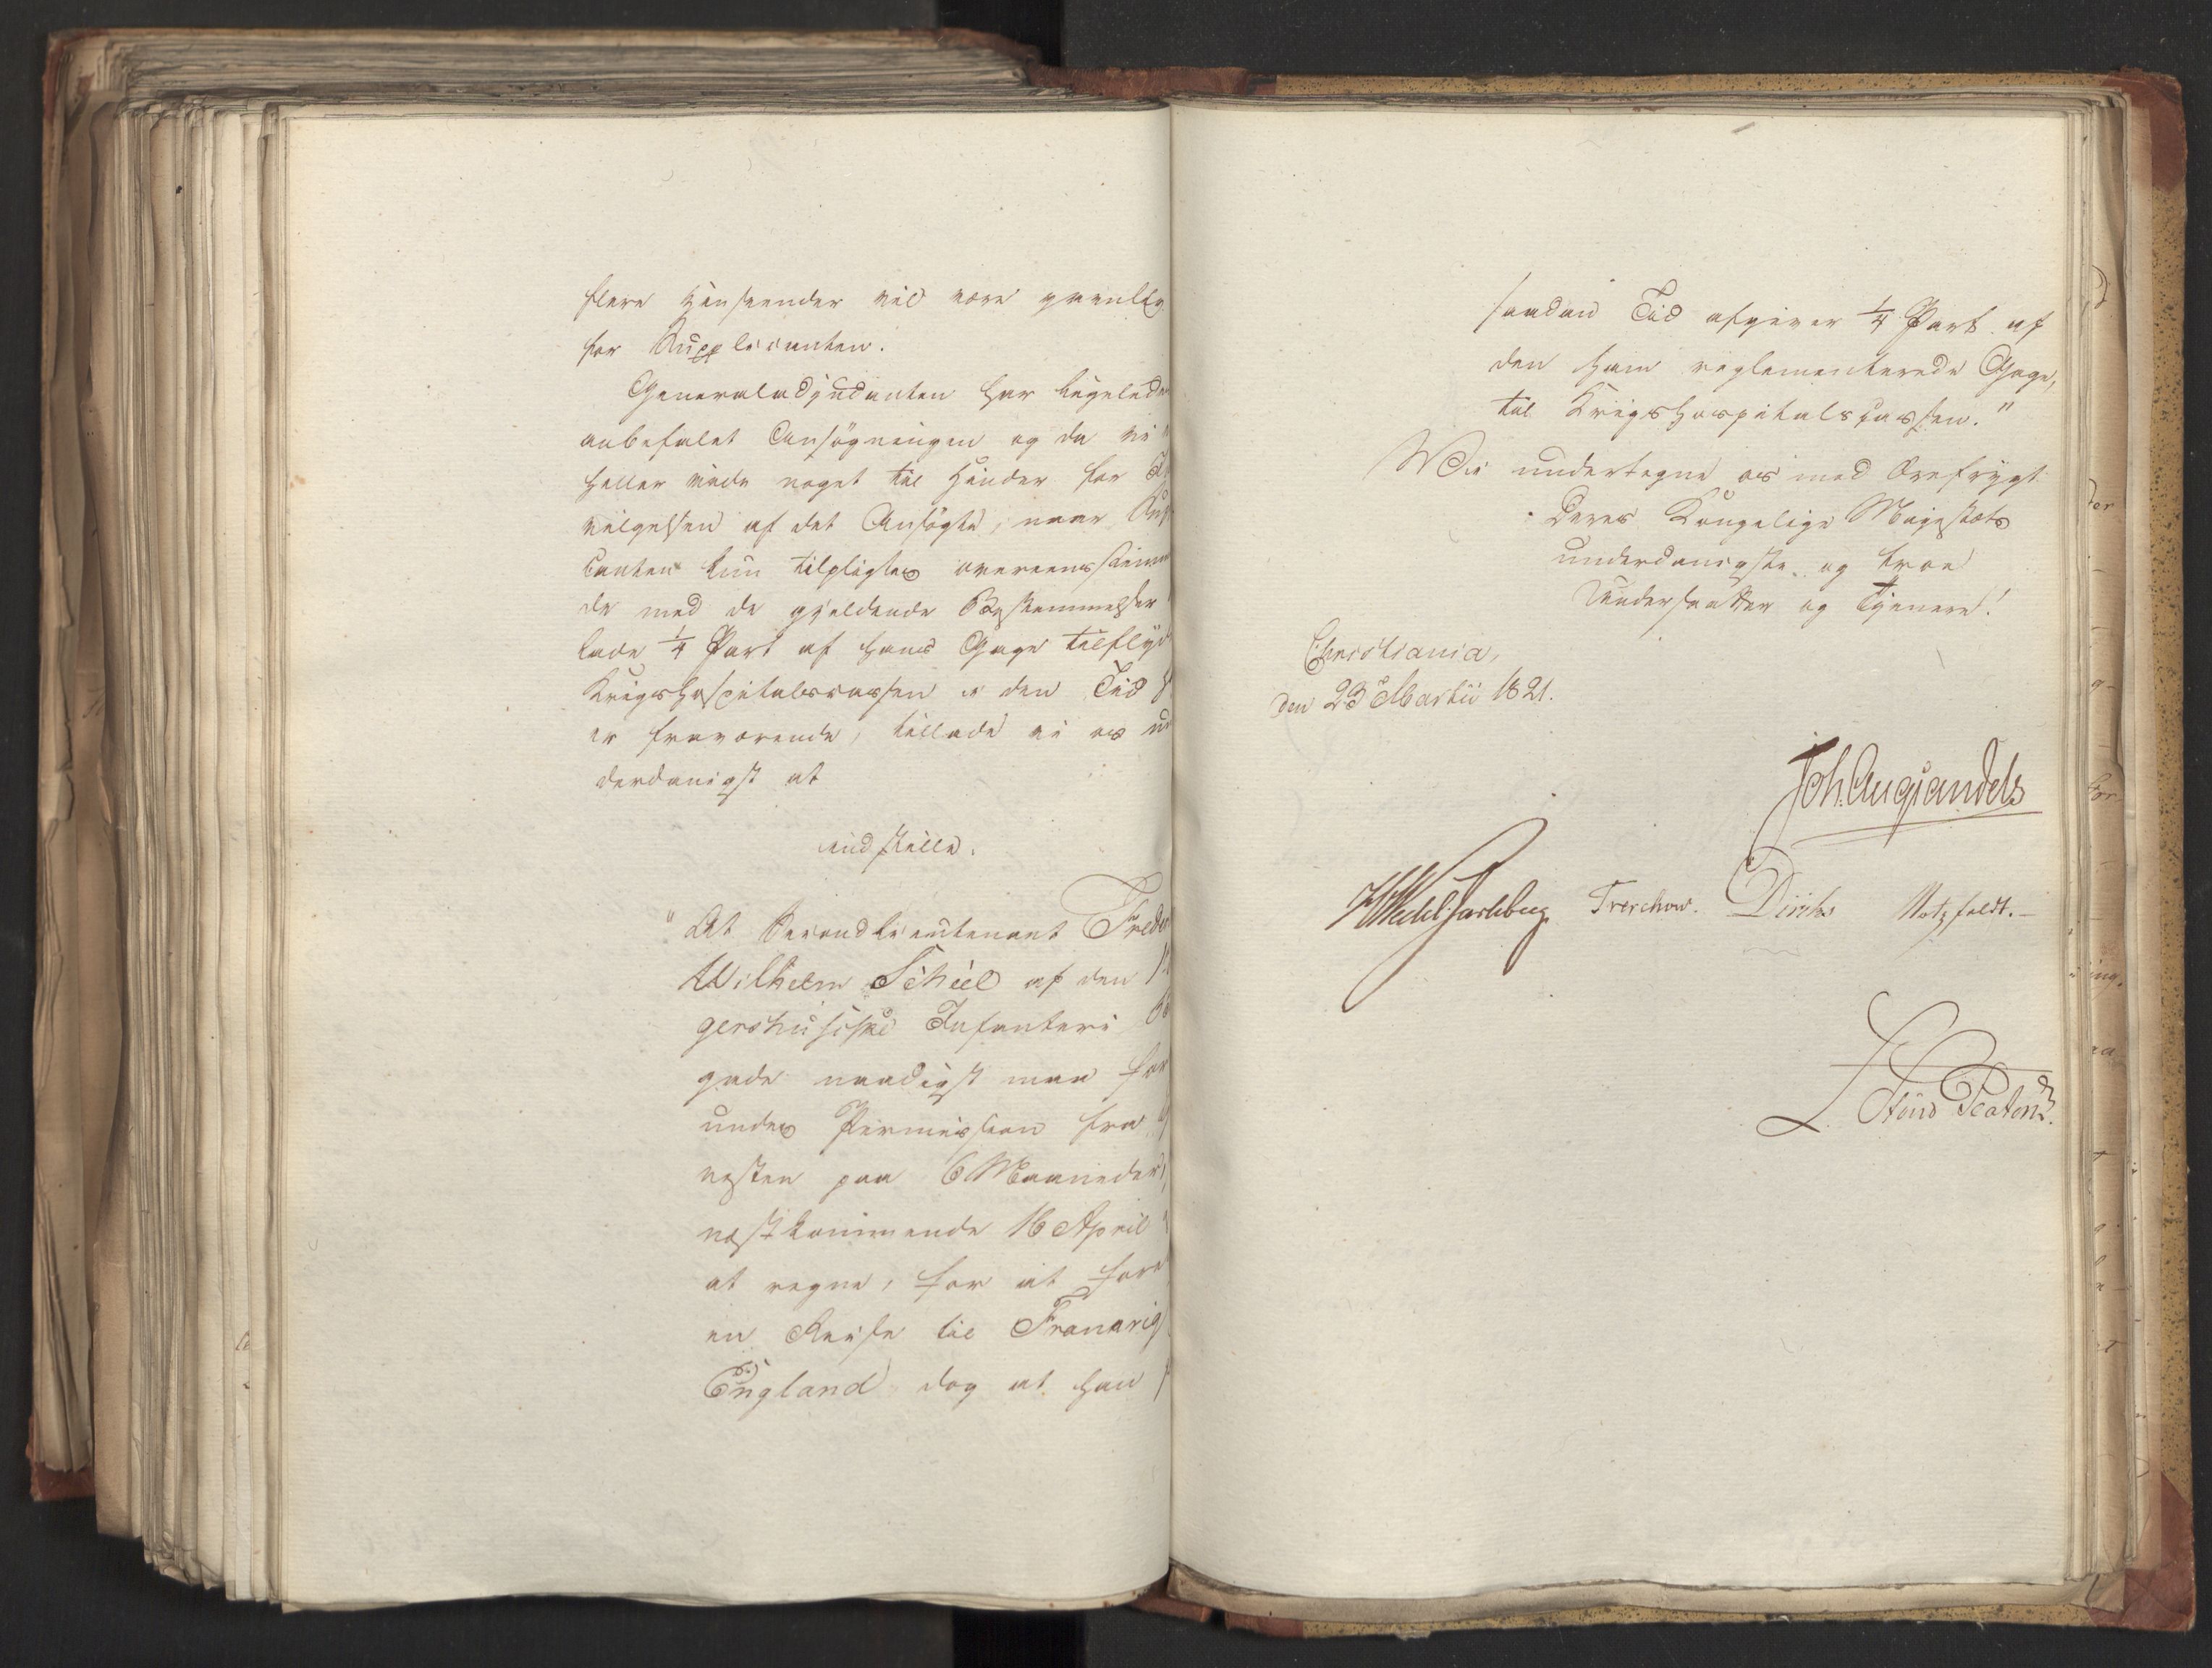 flere Henseender vil være gavnlig
for Supplicanten.
Generaladjudanten har ligeleder
anbefalet Ansögningen og da vi
heller vide noget til Hinder for
vilgelsen af det Ansögte, naar Sup
canten kun tilpligtes overeensstemmen
de med de gjeldende Bestemmelser
lade 1/4 Part af hans Gage tilflyde
Krigshospitalscassen i den Tid
er fraværende, tillade vi os un
derdanigst at
indstille.
"At Secondlieutenant Freder
Wilhelm Schiel af den
gershusiske Infanteri
gade naadigst maa for
undes Permission fra
nesten paa 6 Maaneder,
næstkommende 16 April
at regne, for at fore
en Reise til Francrig
England dog at han
saadan Tid afgiver 1/4 Part af
den ham reglementerede Gage,
til Krigshospitalscassen."
Vi undertegne os med Ærefrygt
Deres Kongelige Majestæts
underdanigste og troe
Undersaatter og Tjenere!
Christiania,
den 23 Martii 1821.
Joh. Aug Sandels
HWedel Jarlsberg Treschow. Diriks Motzfeldt.